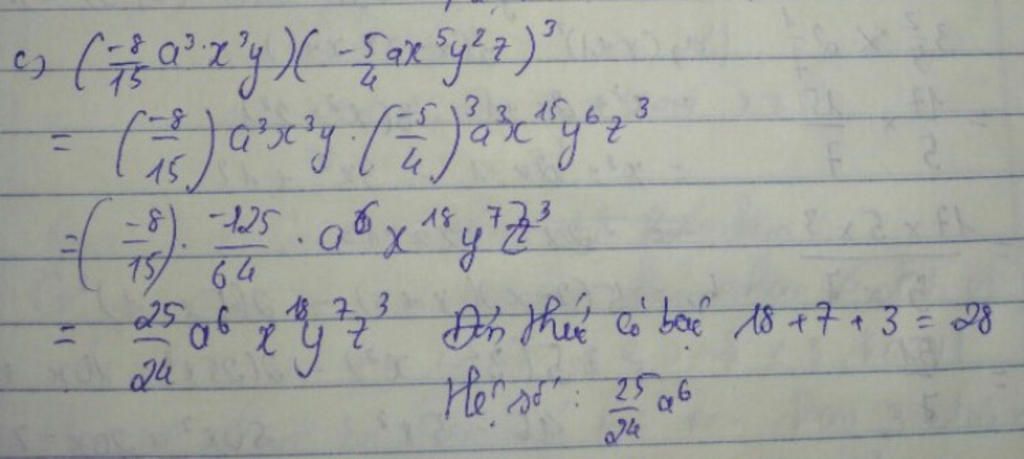 c) (-8/15 a³·x³y)(-5/4 ax⁵y²z)³
= (-8/15) a³x³y · (-5/4)³a³x¹⁵y⁶z³
= (-8/15) · -125/64 · a⁶ x¹⁸y⁷z³
= 25/24 a⁶ x¹⁸y⁷z³ Đơn thức có bậc 18 + 7 + 3 = 28
Hệ số: 25/24 a⁶